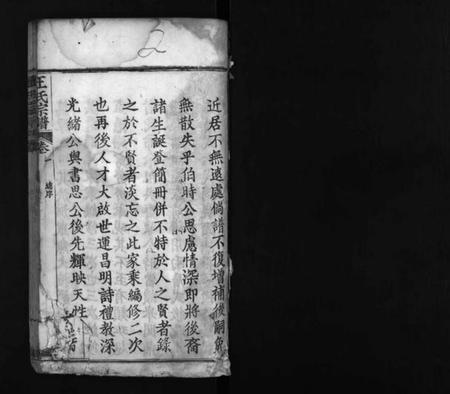 近居不無遠處倘譜不復增補後嗣無
無散失乎伯時公思處情深即將後裔
諸生誕登簡冊併不特於人之賢者錄
之於不賢者淡忘之此家乘編修二次
也再後人才大啟世運昌明詩禮教深
光緒公與書思公後先輝映天性
王氏宗譜
卷一
總序
2